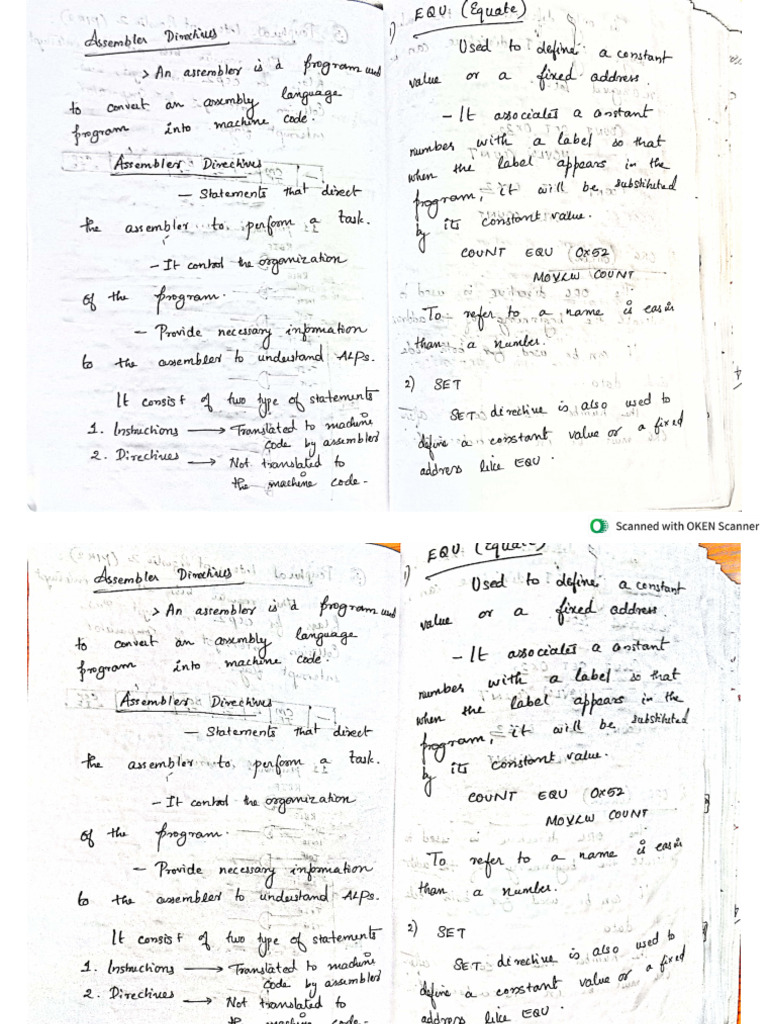 Assembler Directives
> An assembler is a program used
to convert an assembly language
program into machine code.
Assembler Directives
– Statements that direct
the assembler to perform a task.
– It control the organization
of the program.
– Provide necessary information
to the assembler to understand ALPs.
It consist of two type of statements
1. Instructions → Translated to machine
code by assembler
2. Directives → Not translated to
the machine code.
1) EQU (Equate)
Used to define a constant
value or a fixed address.
– It associates a constant
number with a label so that
when the label appears in the
program, it will be substituted
by its constant value.
COUNT EQU 0x52
MOVLW COUNT
To refer to a name is easier
than a number.
2) SET
SET directive is also used to
define a constant value or a fixed
address like EQU.
Scanned with OKEN Scanner
Assembler Directives
> An assembler is a program used
to convert an assembly language
program into machine code.
Assembler Directives
– Statements that direct
the assembler to perform a task.
– It control the organization
of the program.
– Provide necessary information
to the assembler to understand ALPs.
It consist of two type of statements
1. Instructions → Translated to machine
code by assembler
2. Directives → Not translated to
the machine code.
1) EQU (Equate)
Used to define a constant
value or a fixed address.
– It associates a constant
number with a label so that
when the label appears in the
program, it will be substituted
by its constant value.
COUNT EQU 0x52
MOVLW COUNT
To refer to a name is easier
than a number.
2) SET
SET directive is also used to
define a constant value or a fixed
address like EQU.